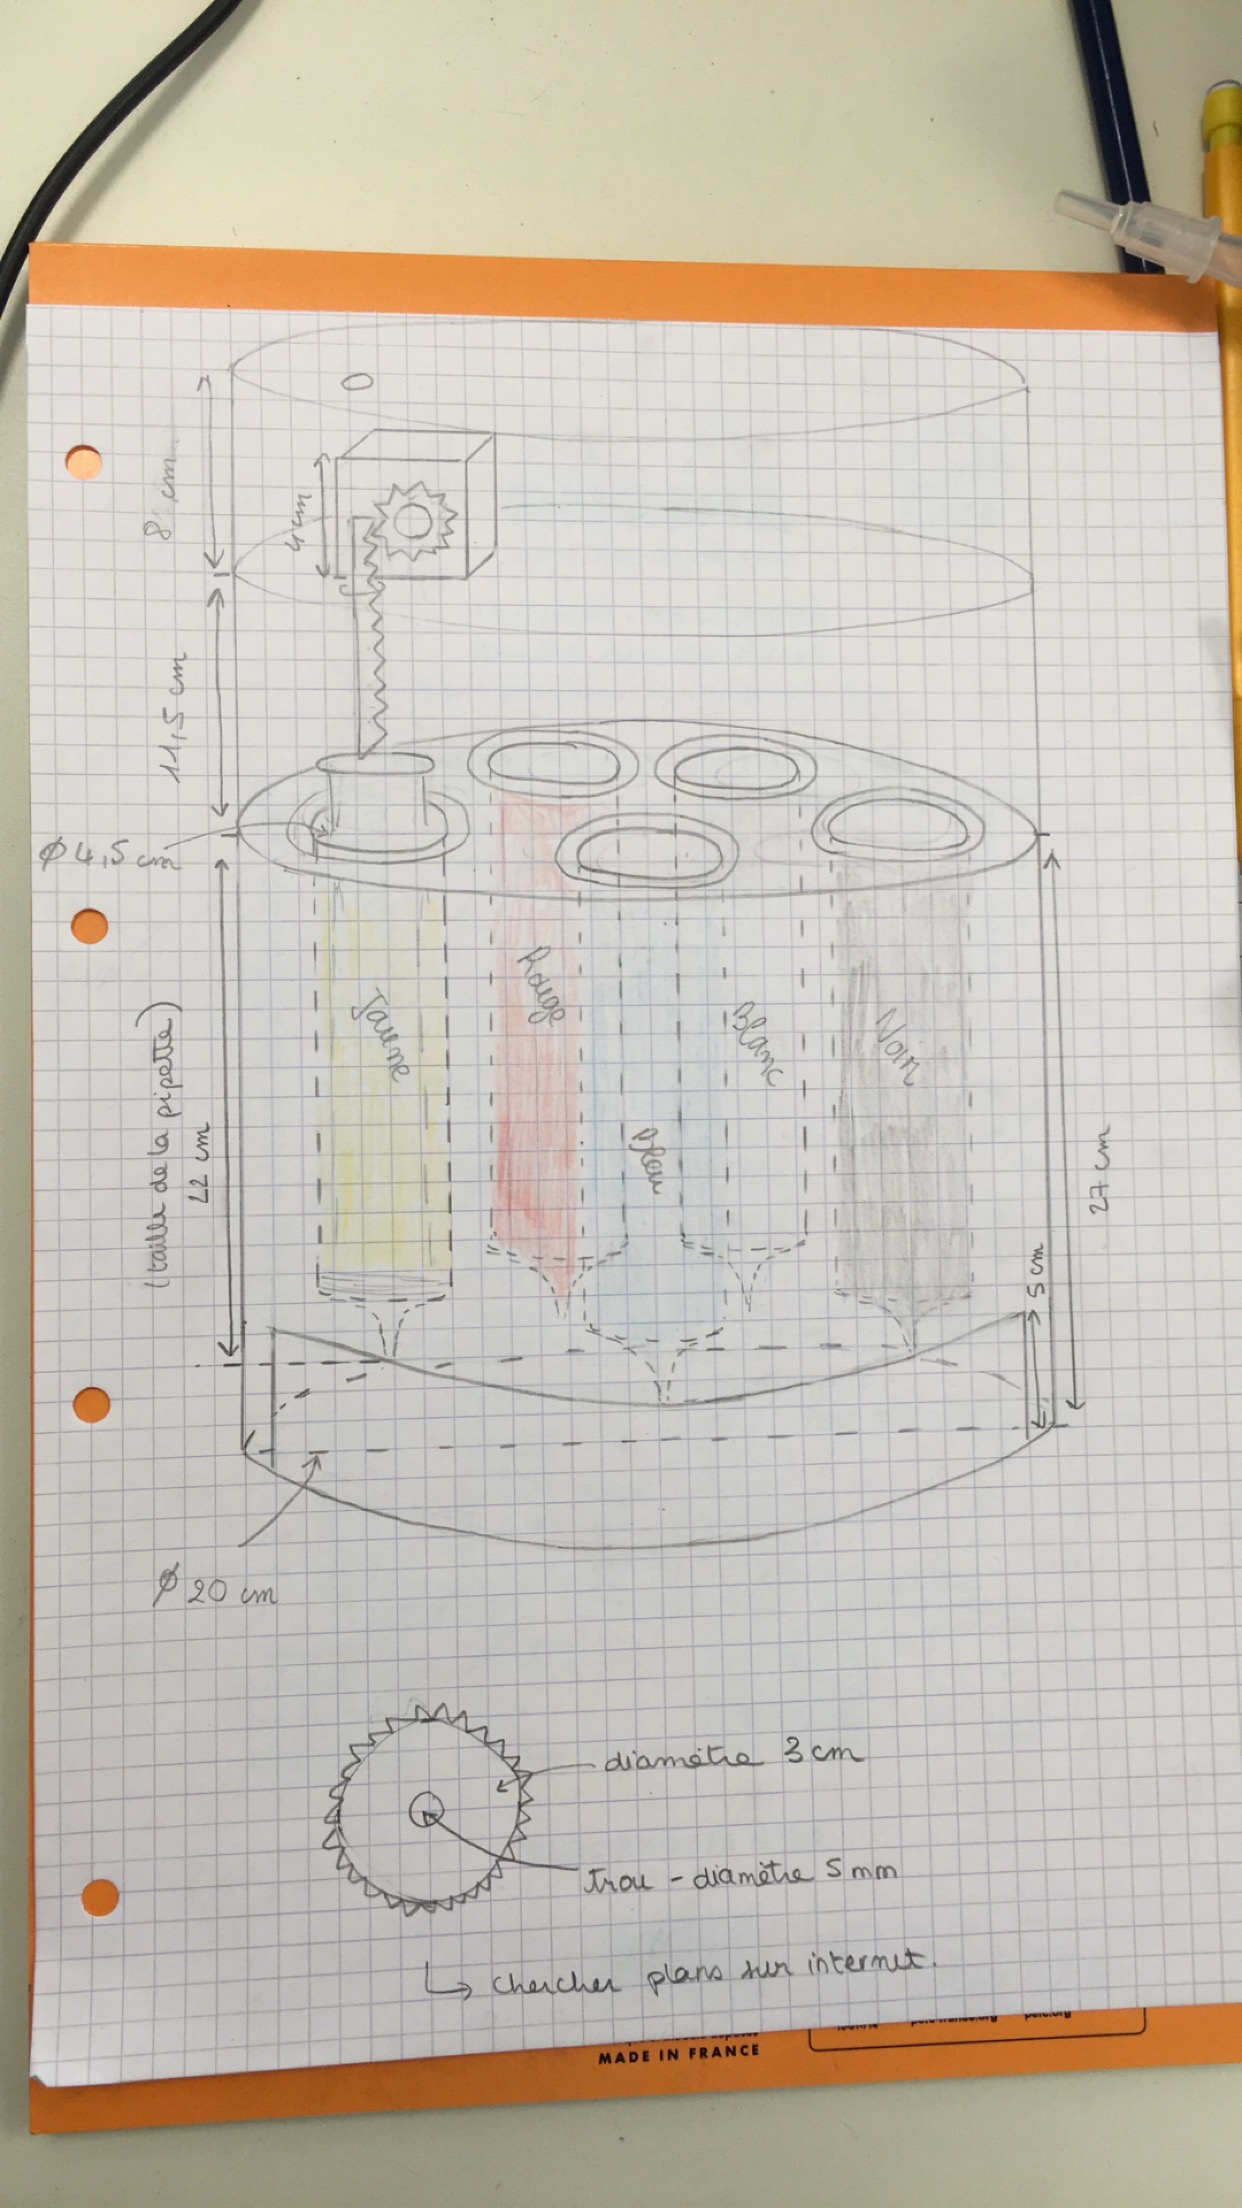 8 cm
4 cm
11,5 cm
Ø 4,5 cm
(taille de la pipette)
22 cm
Jaune
Rouge
Bleu
Blanc
Noir
27 cm
5 cm
Ø 20 cm
diamètre 3 cm
trou - diamètre 5 mm
↳ chercher plans sur internet.
MADE IN FRANCE